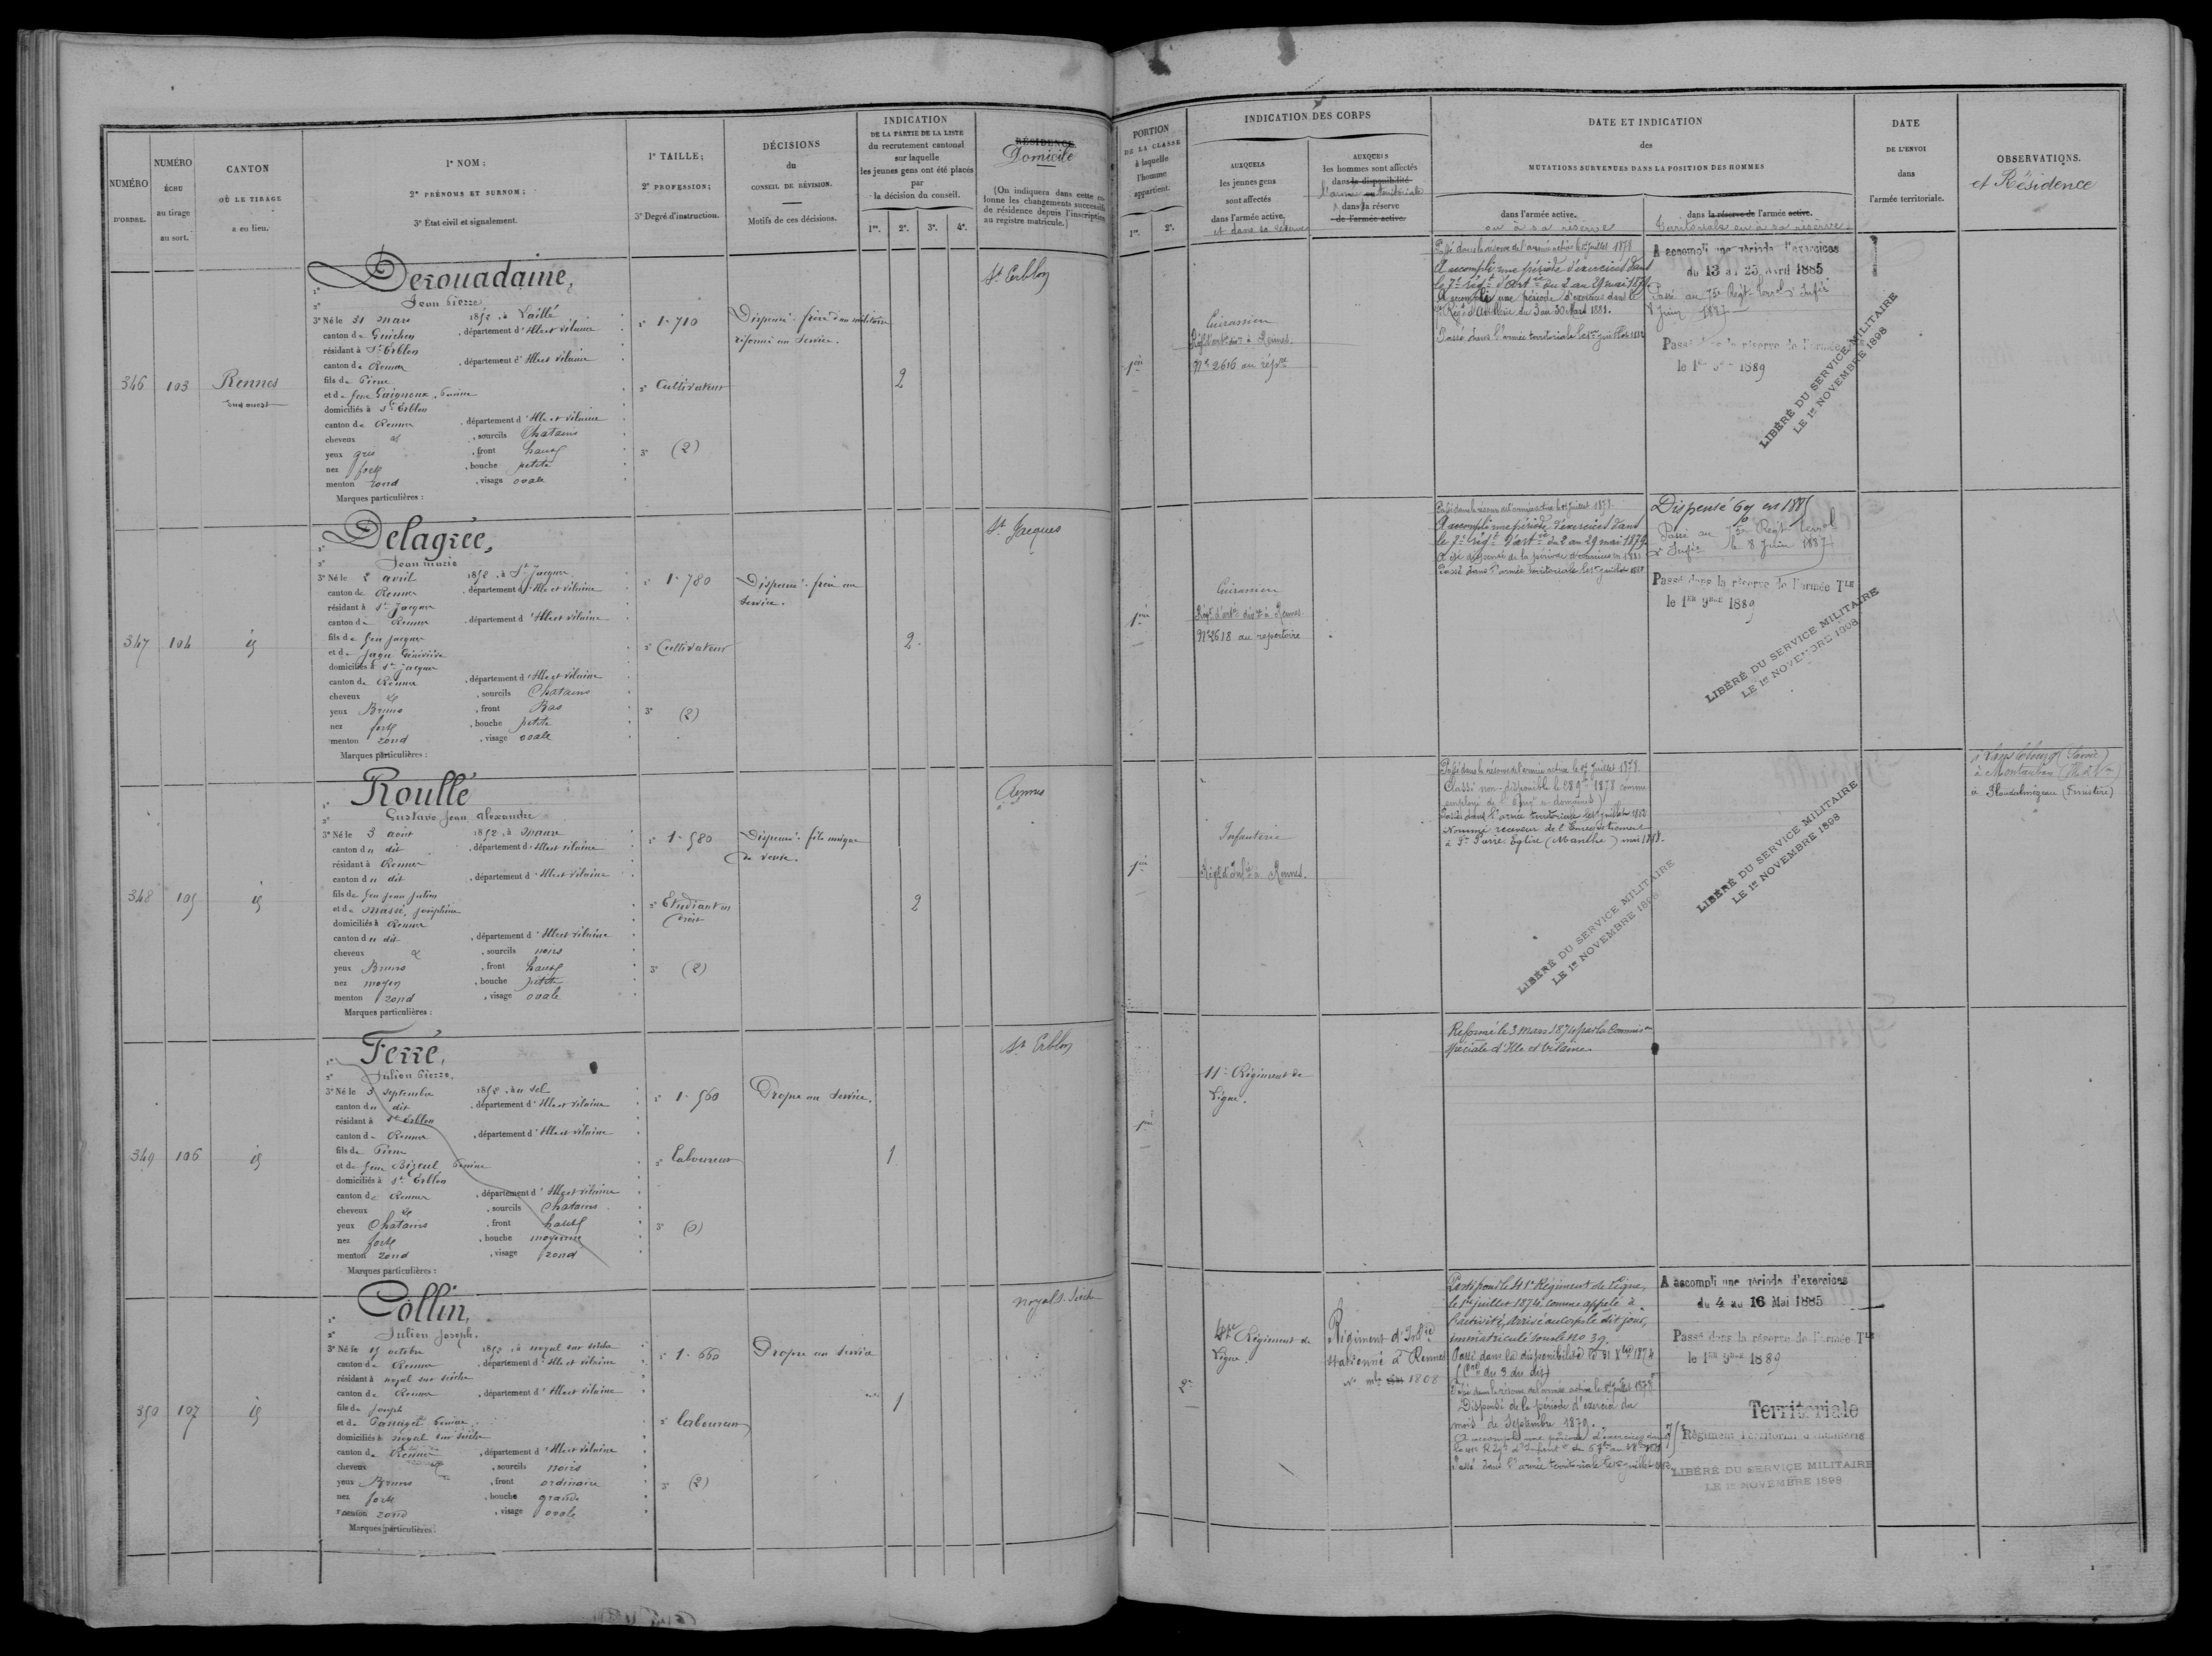 NUMÉRO
D'ORDRE.
NUMÉRO
ÉCHU
au tirage
au sort.
CANTON
OÙ LE TIRAGE
a eu lieu.
1° NOM;
2° PRÉNOMS ET SURNOM;
3° État civil et signalement.
1° TAILLE;
2° PROFESSION;
3° Degré d'instruction.
DÉCISIONS
du
CONSEIL DE RÉVISION.
Motifs de ces décisions.
INDICATION
DE LA PARTIE DE LA LISTE
du recrutement cantonal
sur laquelle
les jeunes gens ont été placés
par
la décision du conseil.
1re. 2e. 3e. 4e.
RÉSIDENCE
Domicile
(On indiquera dans cette co-
lonne les changements successifs
de résidence depuis l'inscription
au registre matricule.)
PORTION
DE LA CLASSE
à laquelle
l'homme
appartient.
1re. 2e.
INDICATION DES CORPS
AUXQUELS
les jeunes gens
sont affectés
dans l'armée active.
et dans sa réserve
AUXQUELS
les hommes sont affectés
dans la disponibilité
l'armée territoriale
dans la réserve
de l'armée active.
DATE ET INDICATION
des
MUTATIONS SURVENUES DANS LA POSITION DES HOMMES
dans l'armée active.
ou à sa réserve
dans la réserve de l'armée active.
territoriale ou à sa réserve
DATE
DE L'ENVOI
dans
l'armée territoriale.
OBSERVATIONS.
et Résidence
346 103 Rennes
sud ouest
Derouadaine,
Jean Pierre
3° Né le 31 mars 1852, à Laillé
canton de Guichen, département d'Ille et Vilaine
résidant à St Erblon
canton de Rennes, département d'Ille et Vilaine
fils de Pierre
et de feue Guigneux,
domiciliés à St Erblon
canton de Rennes, département d'Ille et Vilaine
cheveux et, sourcils Chatains
yeux gris, front haut
nez fort, bouche petite
menton rond, visage ovale
Marques particulières:
1° 1.710
2° Cultivateur
3° (2)
Dispensé: frère d'un militaire
réformé au Service.
2
St Erblon
1ère
Cuirassiers
Régt d'artie à Rennes.
N° 2616 au répre
Passé dans la réserve de l'armée active le 1er juillet 1878
A accompli une période d'exercices dans
le 7e régt d'artie du 2 au 29 mai 1879.
A accompli une période d'exercices dans le
Régt d'Artillerie du 3 au 30 Mars 1881.
Passé dans l'armée territoriale le 1er juillet 1882
A accompli une période d'exercices
du 13 au 25 Avril 1885
Passé au 75e Régt terral d'Infie
8 Juin 1887
Passé dans la réserve de l'armée
le 1er 9bre 1889
LIBÉRÉ DU SERVICE MILITAIRE
LE 1er NOVEMBRE 1898
347 104 id
Delagrée,
Jean Marie
3° Né le 2 avril 1852, à St Jacques
canton de Rennes, département d'Ille et Vilaine
résidant à St Jacques
canton de Rennes, département d'Ille et Vilaine
fils de feu Jacques
et de Jagu Geneviève
domiciliés à St Jacques
canton de Rennes, département d'Ille et Vilaine
cheveux et, sourcils Chatains
yeux Bruns, front Bas
nez fort, bouche petite
menton rond, visage ovale
Marques particulières:
1° 1.780
2° Cultivateur
3° (2)
Dispensé: frère au
Service.
2
St Jacques
1ère
Cuirassiers
Régt d'artie à Rennes
N° 2618 au répertoire
Passé dans la réserve de l'armée active le 1er juillet 1878
A accompli une période d'exercices dans
le 7e régt d'artie du 2 au 29 mai 1879
A été dispensé de la période d'exercices en 1881
Passé dans l'armée territoriale le 1er juillet 1882
Dispensé 69 en 1885
Passé au 75e Régt terral
d'Infie le 8 Juin 1887
Passé dans la réserve de l'armée TLE
le 1ER 9BRE 1889
LIBÉRÉ DU SERVICE MILITAIRE
LE 1er NOVEMBRE 1898
348 105 id
Roullé
Gustave Jean Alexandre
3° Né le 3 août 1852, à Maure
canton du dit, département d'Ille et Vilaine
résidant à Rennes
canton du dit, département d'Ille et Vilaine
fils de feu Jean Julien
et de Massé, Joséphine
domiciliés à Rennes
canton du dit, département d'Ille et Vilaine
cheveux et, sourcils noirs
yeux Bruns, front haut
nez moyen, bouche petite
menton rond, visage ovale
Marques particulières:
1° 1.580
2° Etudiant en
Droit
3° (2)
Dispensé: fils unique
de veuve.
2
Rennes
1ère
Infanterie
Régt d'Infie à Rennes.
Passé dans la réserve de l'armée active le 1er juillet 1878.
Classé non-disponible le 28 9bre 1878 comme
employé de domaines)
Passé dans l'armée territoriale le 1er juillet 1882
Nommé receveur de l'Enregistrement
à St Pierre Eglise (Manche)
LIBÉRÉ DU SERVICE MILITAIRE
LE 1er NOVEMBRE 1898
LIBÉRÉ DU SERVICE MILITAIRE
LE 1er NOVEMBRE 1898
à Lanslebourg (Savoie)
à Montauban (Ille & Vne)
à Ploudalmézeau (Finistère)
349 106 id
Ferré,
Julien Pierre.
3° Né le 3 septembre 1852, au Sel
canton du dit, département d'Ille et Vilaine
résidant à St Erblon
canton de Rennes, département d'Ille et Vilaine
fils de Pierre
et de feue Bizeul
domiciliés à St Erblon
canton de Rennes, département d'Ille et Vilaine
cheveux et, sourcils Chatains
yeux Chatains, front haut
nez fort, bouche moyenne
menton rond, visage rond
Marques particulières:
1° 1.560
2° laboureur
3° (0)
Propre au Service.
1
St Erblon
1ère
11e Régiment de
Ligne.
Réformé le 3 Mars 1874 par la Commison
spéciale d'Ille et Vilaine.
350 107 id
Collin,
Julien Joseph.
3° Né le 15 octobre 1852, à Noyal sur Seiche
canton de Rennes, département d'Ille et Vilaine
résidant à Noyal sur Seiche
canton de Rennes, département d'Ille et Vilaine
fils de Joseph
et de
domiciliés à Noyal sur Seiche
canton de Rennes, département d'Ille et Vilaine
cheveux et, sourcils noirs
yeux Bruns, front ordinaire
nez fort, bouche grande
menton rond, visage ovale
Marques particulières:
1° 1.660
2° laboureur
3° (2)
Propre au Service
1
Noyal s. Seiche
2e
41e Régiment de
Ligne
Régiment d'Infie
stationné à Rennes
No mle 1808
Parti pour le 41e Régiment de ligne,
le 1er juillet 1874, comme appelé à
l'activité, arrivé au corps le dit jour,
immatriculé sous le no 39.
Passé dans la disponibilité le 31 Xbre 1874
du 3 du dit)
Passé dans la réserve de l'armée active le 1er juillet 1878
Dispensé de la période d'exercice du
mois de Septembre 1879.
A accompli une période d'exercices dans
le 41e Régt d'Infantie
Passé dans l'armée territoriale le 1er juillet 1882
A accompli une période d'exercices
du 4 au 16 Mai 1885
Passé dans la réserve de l'armée TLE
le 1ER 9BRE 1889
Territoriale
75e Régiment Territorial d'Infanterie
LIBÉRÉ DU SERVICE MILITAIRE
LE 1er NOVEMBRE 1898